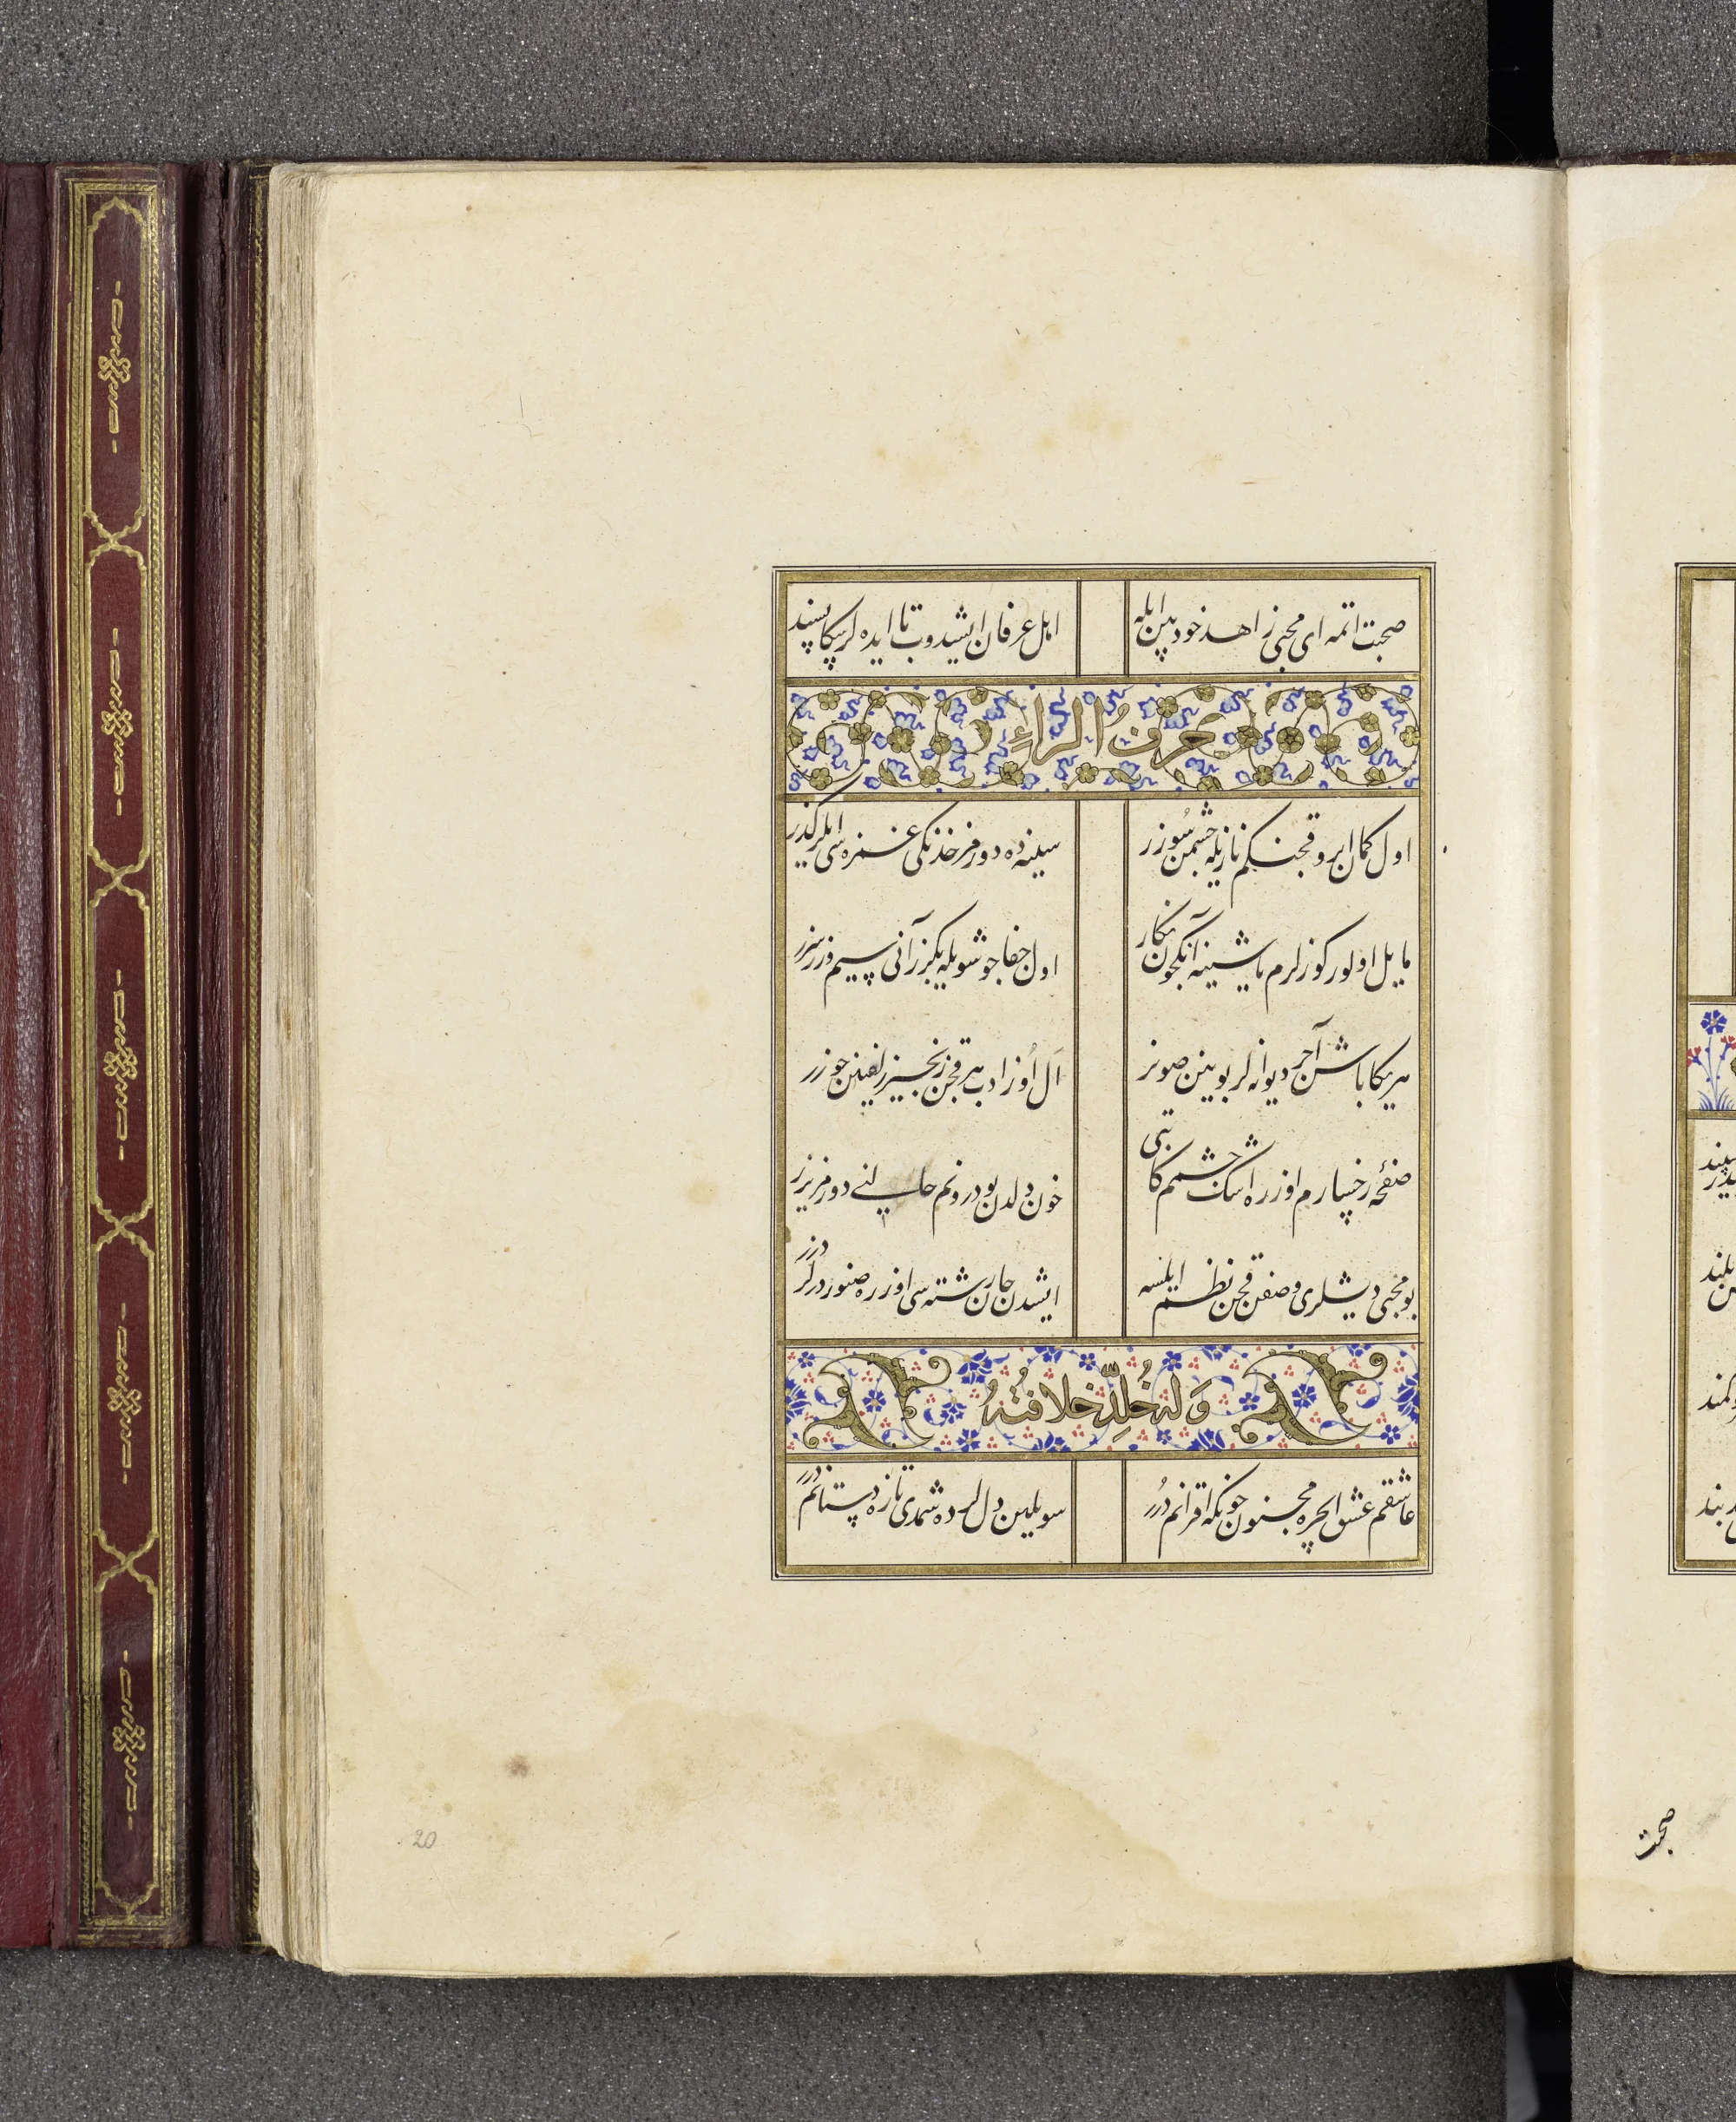 صحبت اتمه ای محبی زاهد خودبین ایله
اهل عرفان ایشیدوب تا ایده لر سکا پسند
حرف الراء
اول کمان ابرو قچنکم نازیله چشمن سوزر
سینه ده دورمز خدنکی غمزه سی ایلر کذر
مایل اولور کوزلرم یاشینه آنکچون نکار
اول جفا جو شویله بکزر آنی سیم و زر سزر
هر یکا باشن آچر دیوانه لر بوینن صونر
ال اوزادب هر قچن زنجیر زلفینن چوزر
صفحهٔ رخسارم اوزره اشک چشمم کاتبی
خون دلدن بو درونم حالنی دورمز یزر
بو محبی دیشلری وصفن قچن نظم ایلسه
ایشدن جان رشته سی اوزره صنور درلر دزر
وله خلد خلافته
عاشقم عشق ایچره مجنون چونکه اقرانم درر
سویلین دللرده شمدی تازه دستانم درر
20
صحبت